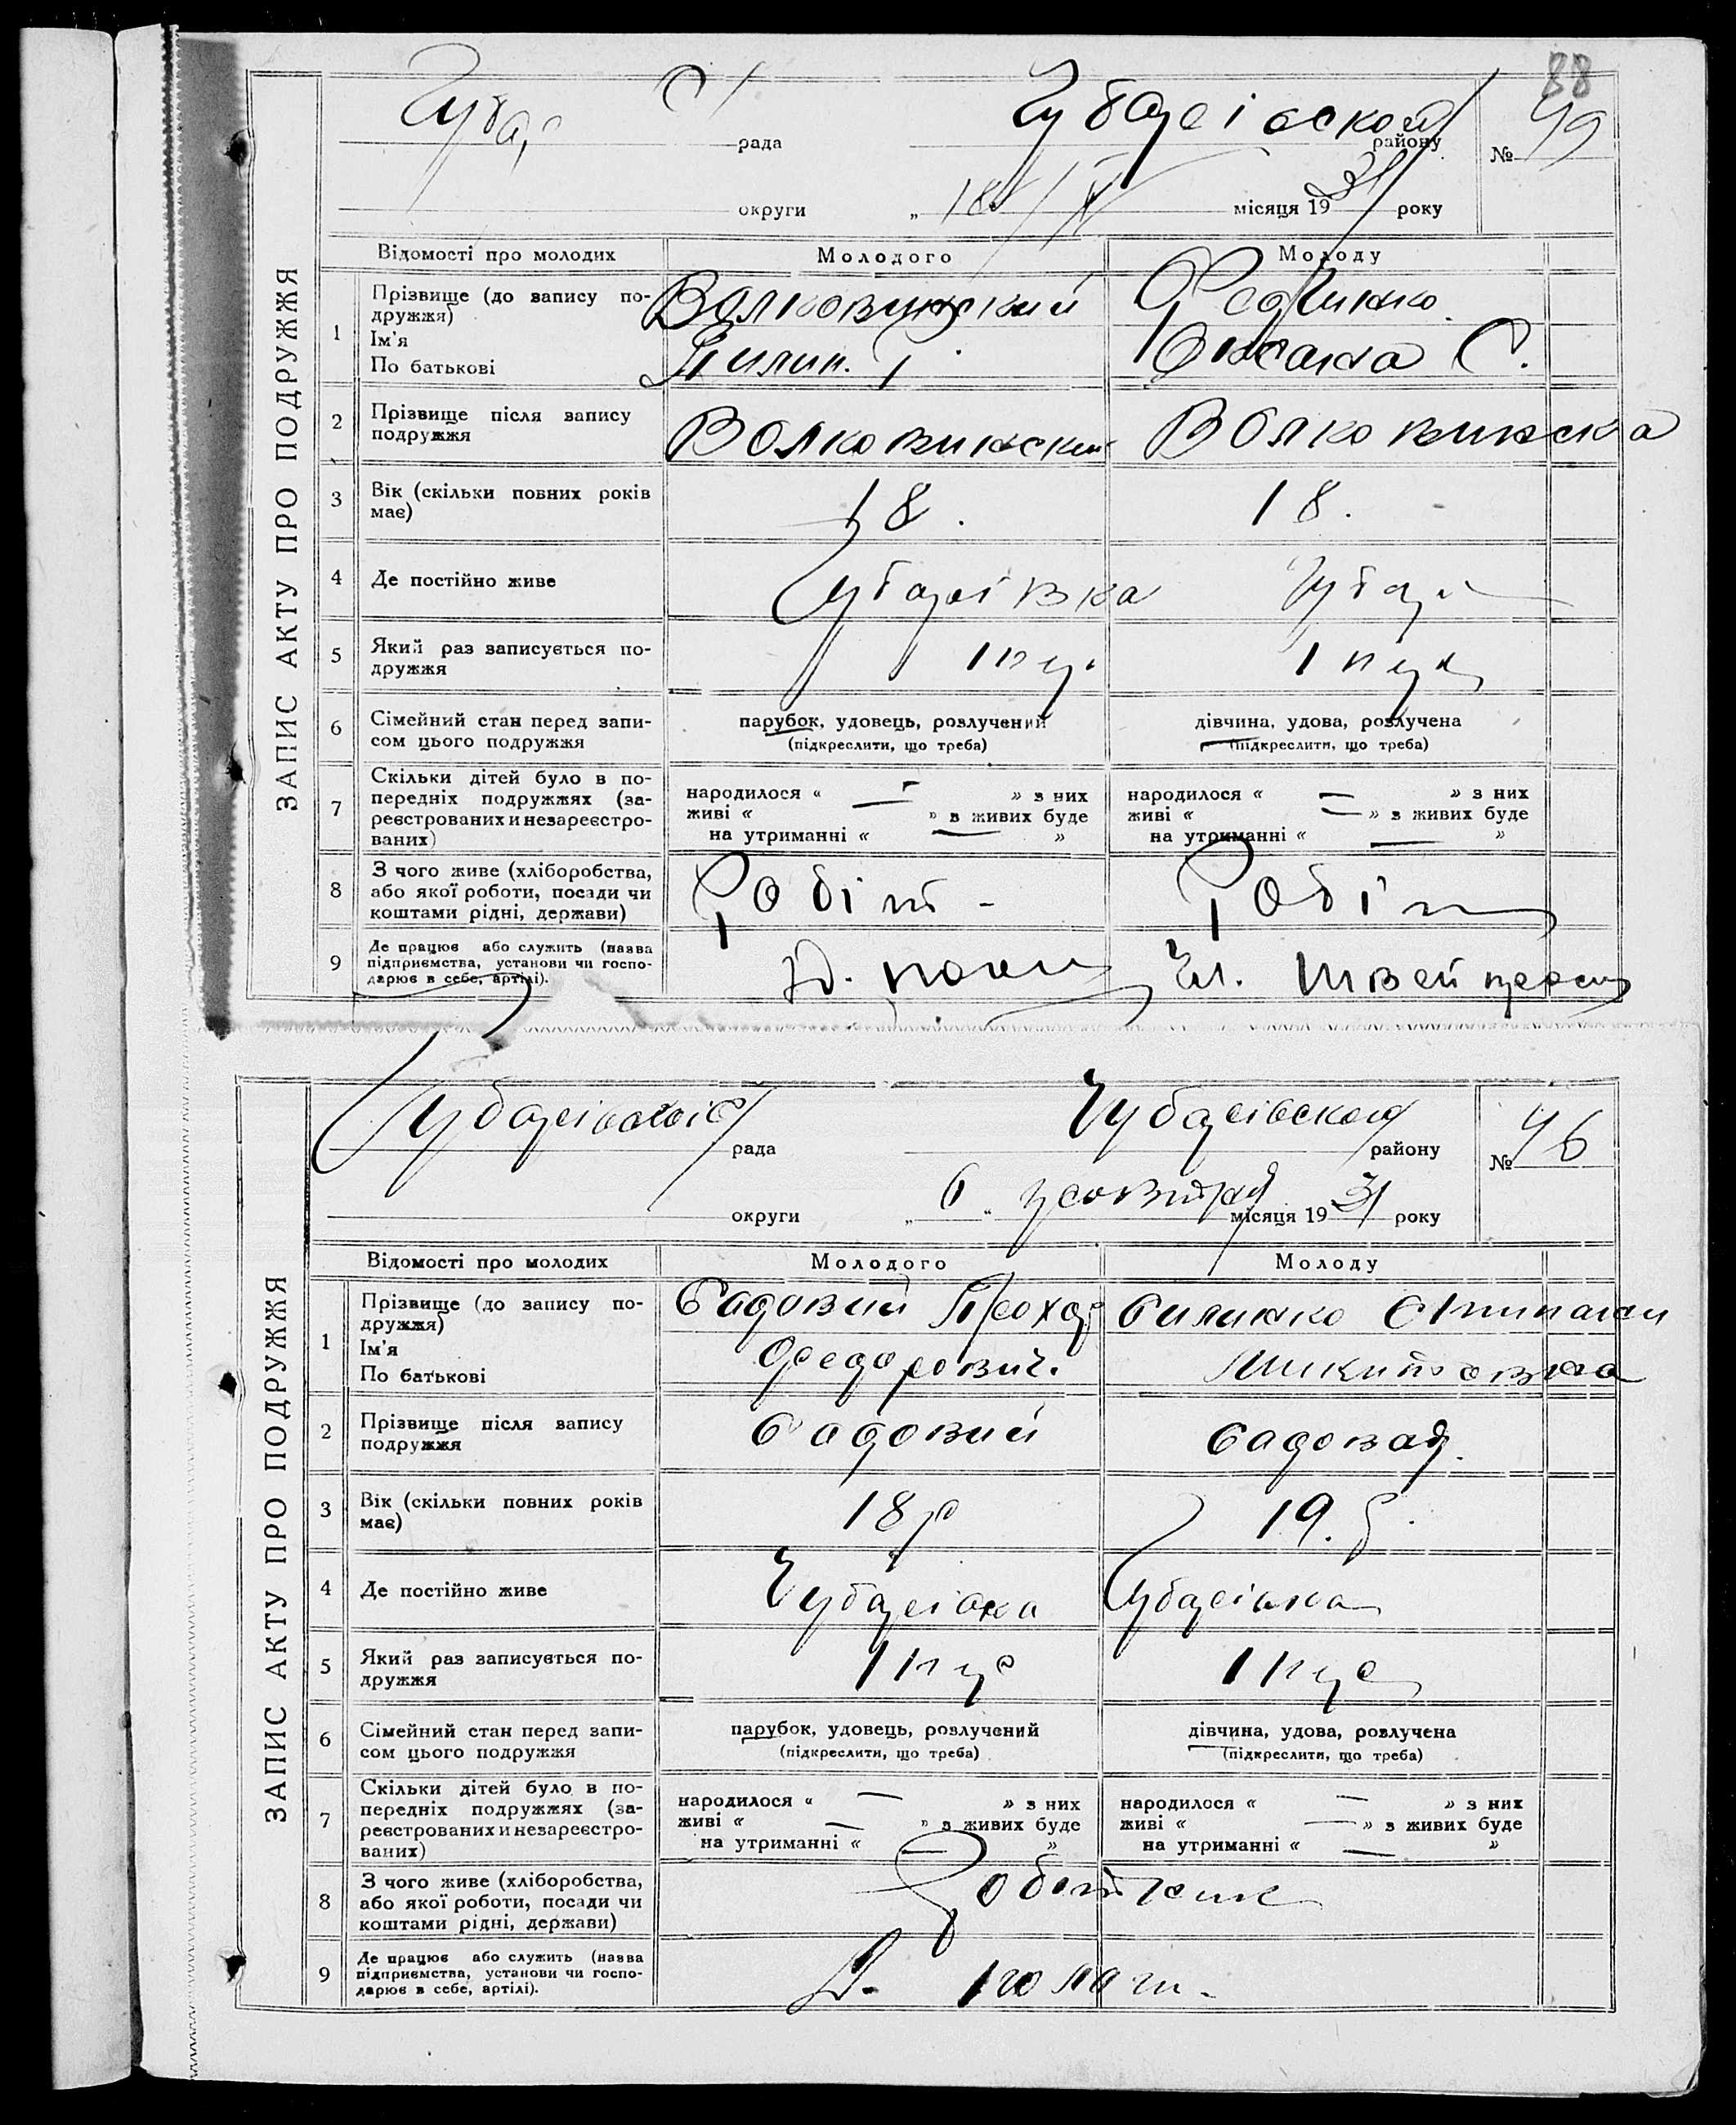 88
С/ Чубарівской
рада району № 49
округи „ 18 / IV місяця 1931 року
ЗАПИС АКТУ ПРО ПОДРУЖЖЯ
Відомості про молодих Молодого Молоду
1 Прізвище (до запису подружжя) Волковинский Редчинко
Ім'я
По батькові Пилип. Оксана С.
2 Прізвище після запису подружжя Волковинский Волковинска
3 Вік (скільки повних років має) 18. 18.
4 Де постійно живе Чубарівка Чубар
5 Який раз записується подружжя 1 1
6 Сімейний стан перед записом цього подружжя парубок, удовець, розлучений дівчина, удова, розлучена
(підкреслити, що треба) (підкреслити, що треба)
7 Скільки дітей було в попередніх подружжях (зареєстрованих и незареєстрованих)
народилося « — » з них народилося « — » з них
живі « » з живих буде живі « — » з живих буде
на утриманні « — » на утриманні « — »
8 З чого живе (хліборобства, або якої роботи, посади чи коштами рідні, держави) Робіт - Робіт
9 Де працює або служить (назва підприємства, установи чи господарює в себе, артілі). Швейпром
Чубарівскої Чубарівской
рада району № 46
округи „ 6 “ жовтня місяця 1931 року
ЗАПИС АКТУ ПРО ПОДРУЖЖЯ
Відомості про молодих Молодого Молоду
1 Прізвище (до запису подружжя) Садовий Прохор Силинко
Ім'я
По батькові Федорович. Микитовна
2 Прізвище після запису подружжя Садовий Садовая.
3 Вік (скільки повних років має) 18 р 19. р.
4 Де постійно живе Чубарівка Чубарівка
5 Який раз записується подружжя 1 1
6 Сімейний стан перед записом цього подружжя парубок, удовець, розлучений дівчина, удова, розлучена
(підкреслити, що треба) (підкреслити, що треба)
7 Скільки дітей було в попередніх подружжях (зареєстрованих и незареєстрованих)
народилося « — » з них народилося « — » з них
живі « — » з живих буде живі « — » з живих буде
на утриманні « — » на утриманні « — »
8 З чого живе (хліборобства, або якої роботи, посади чи коштами рідні, держави) Робітник
9 Де працює або служить (назва підприємства, установи чи господарює в себе, артілі).